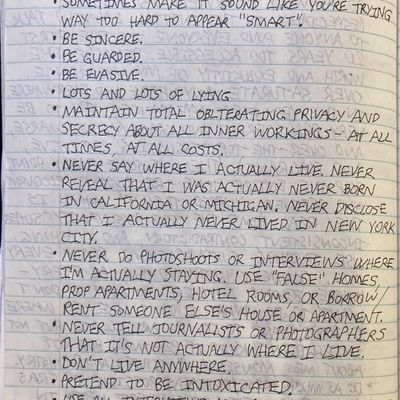 • SOMETIMES MAKE IT SOUND LIKE YOU'RE TRYING
WAY TOO HARD TO APPEAR "SMART".
• BE SINCERE.
• BE GUARDED.
• BE EVASIVE.
• LOTS AND LOTS OF LYING
• MAINTAIN TOTAL OBLTERATING PRIVACY AND
SECRECY ABOUT ALL INNER WORKINGS - AT ALL
TIMES, AT ALL COSTS.
• NEVER SAY WHERE I ACTUALLY LIVE. NEVER
REVEAL THAT I WAS ACTUALLY NEVER BORN
IN CALIFORNIA OR MICHIGAN. NEVER DISCLOSE
THAT I ACTUALLY NEVER LIVED IN NEW YORK
CITY.
• NEVER DO PHOTOSHOOTS OR INTERVIEWS WHERE
I'M ACTUALLY STAYING. USE "FALSE" HOMES,
PROP APARTMENTS, HOTEL ROOMS, OR BORROW/
RENT SOMEONE ELSE'S HOUSE OR APARTMENT.
• NEVER TELL JOURNALISTS OR PHOTOGRAPHERS
THAT IT'S NOT ACTUALLY WHERE I LIVE.
• DON'T LIVE ANYWHERE.
• PRETEND TO BE INTOXICATED.
• USE AN